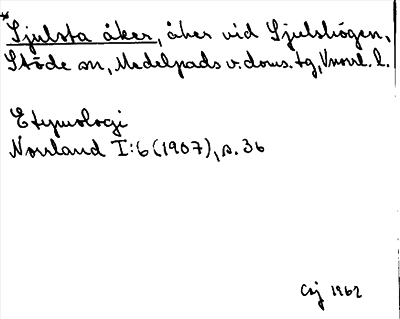 *Sjulsta åker, åker vid Sjulshögen,
Stöde sn, Medelpads v. doms. tg, Vnorrl. l.
Etymologi
Norrland I:6 (1907), s. 36
CSj 1962